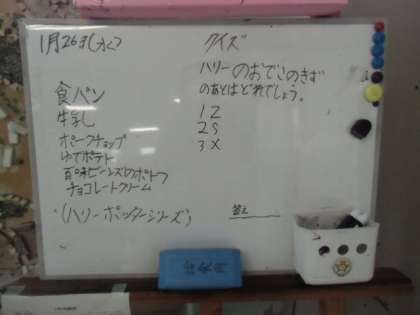 1月26日(水)
食パン
牛乳
ポークチョップ
ゆでポテト
百味ビーンズのポトフ
チョコレートクリーム
(ハリーポッターシリーズ)
クイズ
ハリーのおでこのきず
のあとはどれでしょう。
1 Z
2 S
3 X
答え
給食用